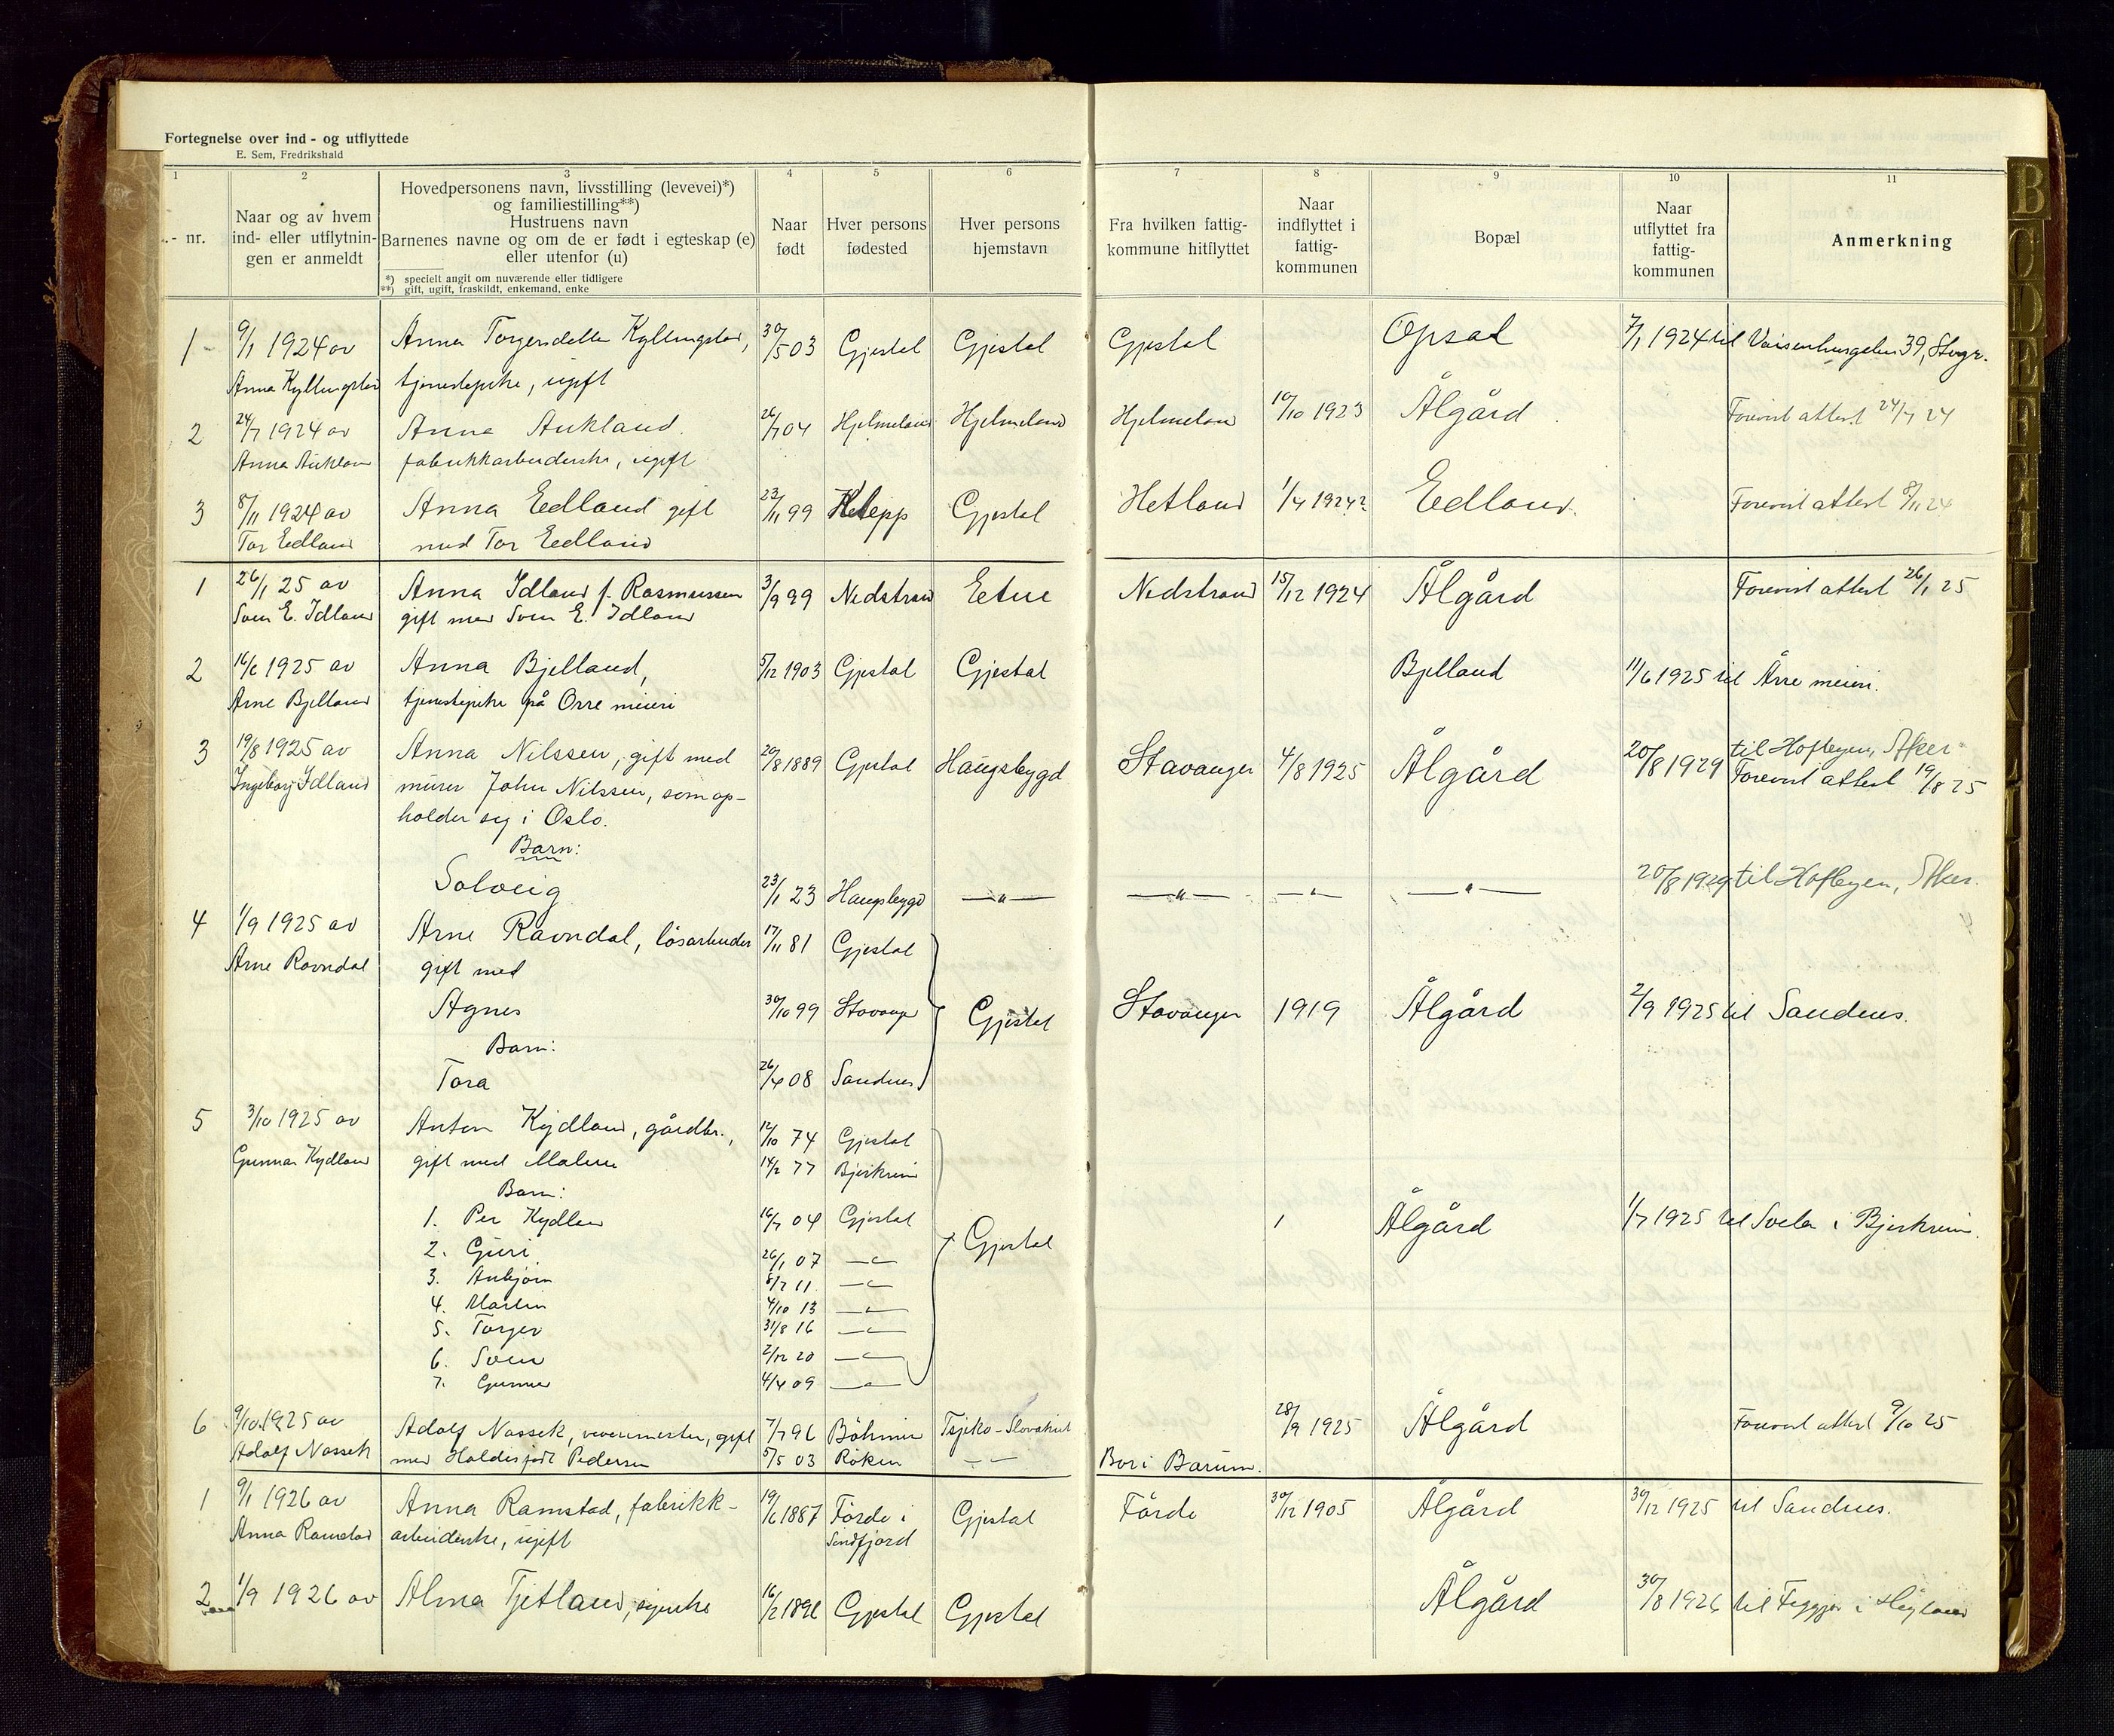 Fortegnelse over ind- og utflyttede
E. Sem, Fredrikshald
1 2 3 4 5 6 7 8 9 10 11
- nr.
Naar og av hvem
ind- eller utflytnin-
gen er anmeldt
Hovedpersonens navn, livsstilling (levevei)*)
og familiestilling**)
Hustruens navn
Barnenes navne og om de er født i egteskap (e)
eller utenfor (u)
*) specielt angit om nuværende eller tidligere
**) gift, ugift, fraskildt, enkemand, enke
Naar
født
Hver persons
fødested
Hver persons
hjemstavn
Fra hvilken fattig-
kommune hitflyttet
Naar
indflyttet i
fattig-
kommunen
Bopæl
Naar
utflyttet fra
fattig-
kommunen
Anmerkning
1 9/1 1924 av Anna Torgersdatter Kyllingstad, 30/5 03 Gjestal Gjestal Gjestal Opsal 7/1 1924 til Vaisenhusgaten 39, Stvgr.
Anna Kyllingstad tjenestepike, ugift
2 24/7 1924 av Anna Aukland 26/7 04 Hjelmeland Hjelmeland Hjelmeland 10/10 1923 Ålgård Forevist attest 24/7 24
Anna Aukland fabrikkarbeiderske, ugift
3 8/11 1924 av Anna Edland gift 23/11 99 Klepp Gjestal Hetland 1/4 1924? Edland Forevist attest 8/11 24
Tor Edland med Tor Edland
1 26/1 25 av Anna Idland f. Rasmussen 3/9 99 Nedstrand Etne Nedstrand 15/12 1924 Ålgård Forevist attest 26/1 25
Sven E. Idland gift med Sven E. Idland
2 16/6 1925 av Anna Bjelland, 5/12 1903 Gjestal Gjestal Bjelland 11/6 1925 til Årre meieri.
Arne Bjelland tjenestepike på Orre meieri
3 19/8 1925 av Anna Nilssen, gift med 20/8 1889 Gjestal Haugsbygd Stavanger 4/8 1925 Ålgård 20/8 1929 til Hoflegen, Aker
Ingeborg Idland murer John Nilssen, som op- Forevist attest 19/8 25
holder sig i Oslo.
Barn:
Solveig 23/1 23 Haugsbygd —"— —"— —"— —"— 20/8 1929 til Hoflegen, Aker.
4 1/9 1925 av Arne Ravndal, løsarbeider 17/11 81 Gjestal
Arne Ravndal gift med
Agnes 30/10 99 Stavanger Gjestal Stavanger 1919 Ålgård 2/9 1925 til Sandnes.
Barn:
Tora 26/4 08 Sandnes
5 3/10 1925 av Anton Kydland, gårdbr., 12/10 74 Gjestal
Gunnar Kydland gift med Malene 14/2 77 Bjerkreim
Barn:
1. Per Kydland 16/7 04 Gjestal Gjestal Ålgård 1/7 1925 til Svela i Bjerkreim.
2. Guri 26/1 07 —"—
3. Anbjørn 8/7 11 —"—
4. Martin 4/10 13 —"—
5. Torger 31/8 16 —"—
6. Sven 2/12 20 —"—
7. Gunnar 4/4 09 —"—
6 9/10 1925 av Adolf Nassek, vevermester, gift 7/7 96 Böhmen Tsjeko-Slovakiet 28/9 1925 Ålgård Forevist attest 9/10 25
Adolf Nassek med Haldis født Pedersen 5/5 03 Röken — — Bor i Bärum.
1 9/1 1926 av Anna Ramstad, fabrikk- 19/6 1887 Förde i Gjestal Förde 30/12 1905 Ålgård 30/12 1925 til Sandnes.
Anna Ramstad arbeiderske, ugift Sondfjord
2 1/9 1926 av Alma Tjetland, sypike 16/2 1896 Gjestal Gjestal Ålgård 30/8 1926 til Foggjo i Høyland
B C D E F G H